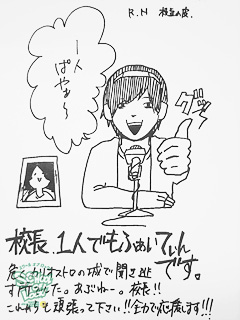 R.N 枝豆の皮.
一人
ぱやぁ〜
グッ
校長、1人でもふぁいてぃん
です。
危くカリオストロの城で聞き逃
す所でした。あぶねー。校長!!
これからも頑張って下さい!!全力で応援します!!!